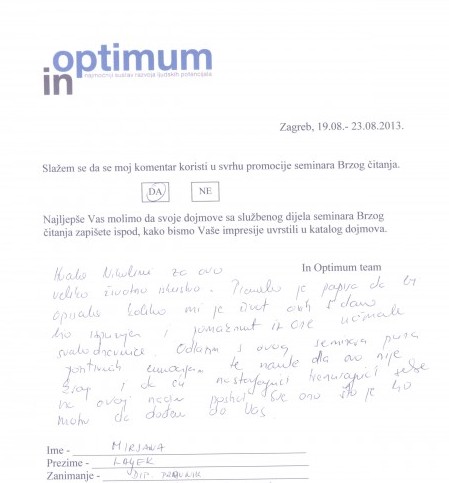 in optimum
najmoćniji sustav razvoja ljudskih potencijala
Zagreb, 19.08.- 23.08.2013.
Slažem se da se moj komentar koristi u svrhu promocije seminara Brzog čitanja.
DA NE
Najljepše Vas molimo da svoje dojmove sa službenog dijela seminara Brzog
čitanja zapišete ispod, kako bismo Vaše impresije uvrstili u katalog dojmova.
In Optimum team
Hvala Nikolina za ovo
veliko životno iskustvo. je papira da bi
opisala koliko mi je život ovih 5 dana
bio ispunjen i iz ove
svakodnevnice. Odlazim s ovog seminara puna
pozitivnih emocija te
kraj i da ću
na ovaj način sve ono što je
da dođem do Vas.
Ime - MIRJANA
Prezime -
Zanimanje - DIP. PRAVNIK